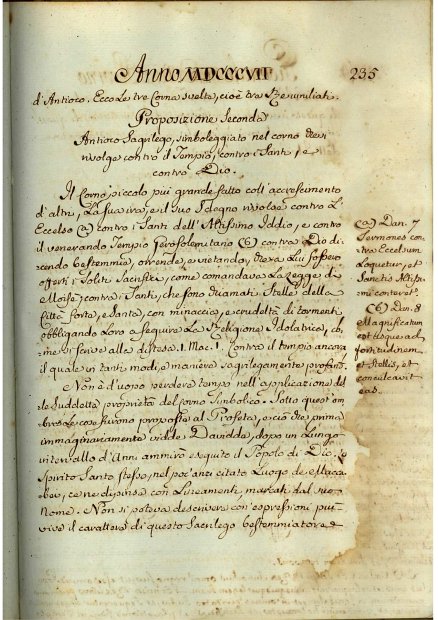 Anno MDCCCVII 235
d'Antioco. Ecco le tre Corna svelte, cioè tre Re umiliati.
Proposizione Seconda
Antioco Sagrilego, simboleggiato nel corno che si
rivolge contro il Tempio, contro i Santi, e
contro Dio.
Il Corno piccolo più grande fatto coll'accrescimento
d'altri, la sua ira, e il suo sdegno rivolse contro l'
Eccelso (a) contro i Santi dell'Altissimo Iddio, e contro
il venerando Tempio Gerosolimitano (b) contro Dio di-
cendo bestemmie orrende, e vietando, che a Lui fossero
offerti i soliti Sacrifizi, come comandava la Legge di
Moisè; contro i Santi, che sono chiamati Stelle della
Città forte, e santa, con minaccie, e crudeltà di tormenti
obbligando Loro a seguire la Religione Idolatrica, co-
me si scrive alla distesa 1. Mac. 1. Contra il tempio ancora,
il quale in tanti modi, e maniere sagrilegamente profanò.
Non è d'uopo perdere tempo nell'applicazione del-
le suddette proprietà del corno simbolico. Sotto quest'om-
bra le cose furono proposte al Profeta, e ciò che prima
immaginariamente vidde Davidde, dopo un Lungo
intervallo d'Anni ammirò eseguito il Popolo di Dio. Lo
Spirito Santo stesso, nel poc'anzi citato Luogo de' Macca-
bei, ce ne dipinse con Lineamenti, marcati dal suo
Nome. Non si poteva descrivere con espressioni più
vive il carattere di questo Sacrilego bestemmiatore
(a) Dan. 7
Sermones con-
tra Excelsum
Loquetur, et
Sanctos Altissi-
mi conteret.
(b) Dan. 8
Magnificatum
est usque ad
fortitudinem
et Stellis, et
conculcavit
eas.